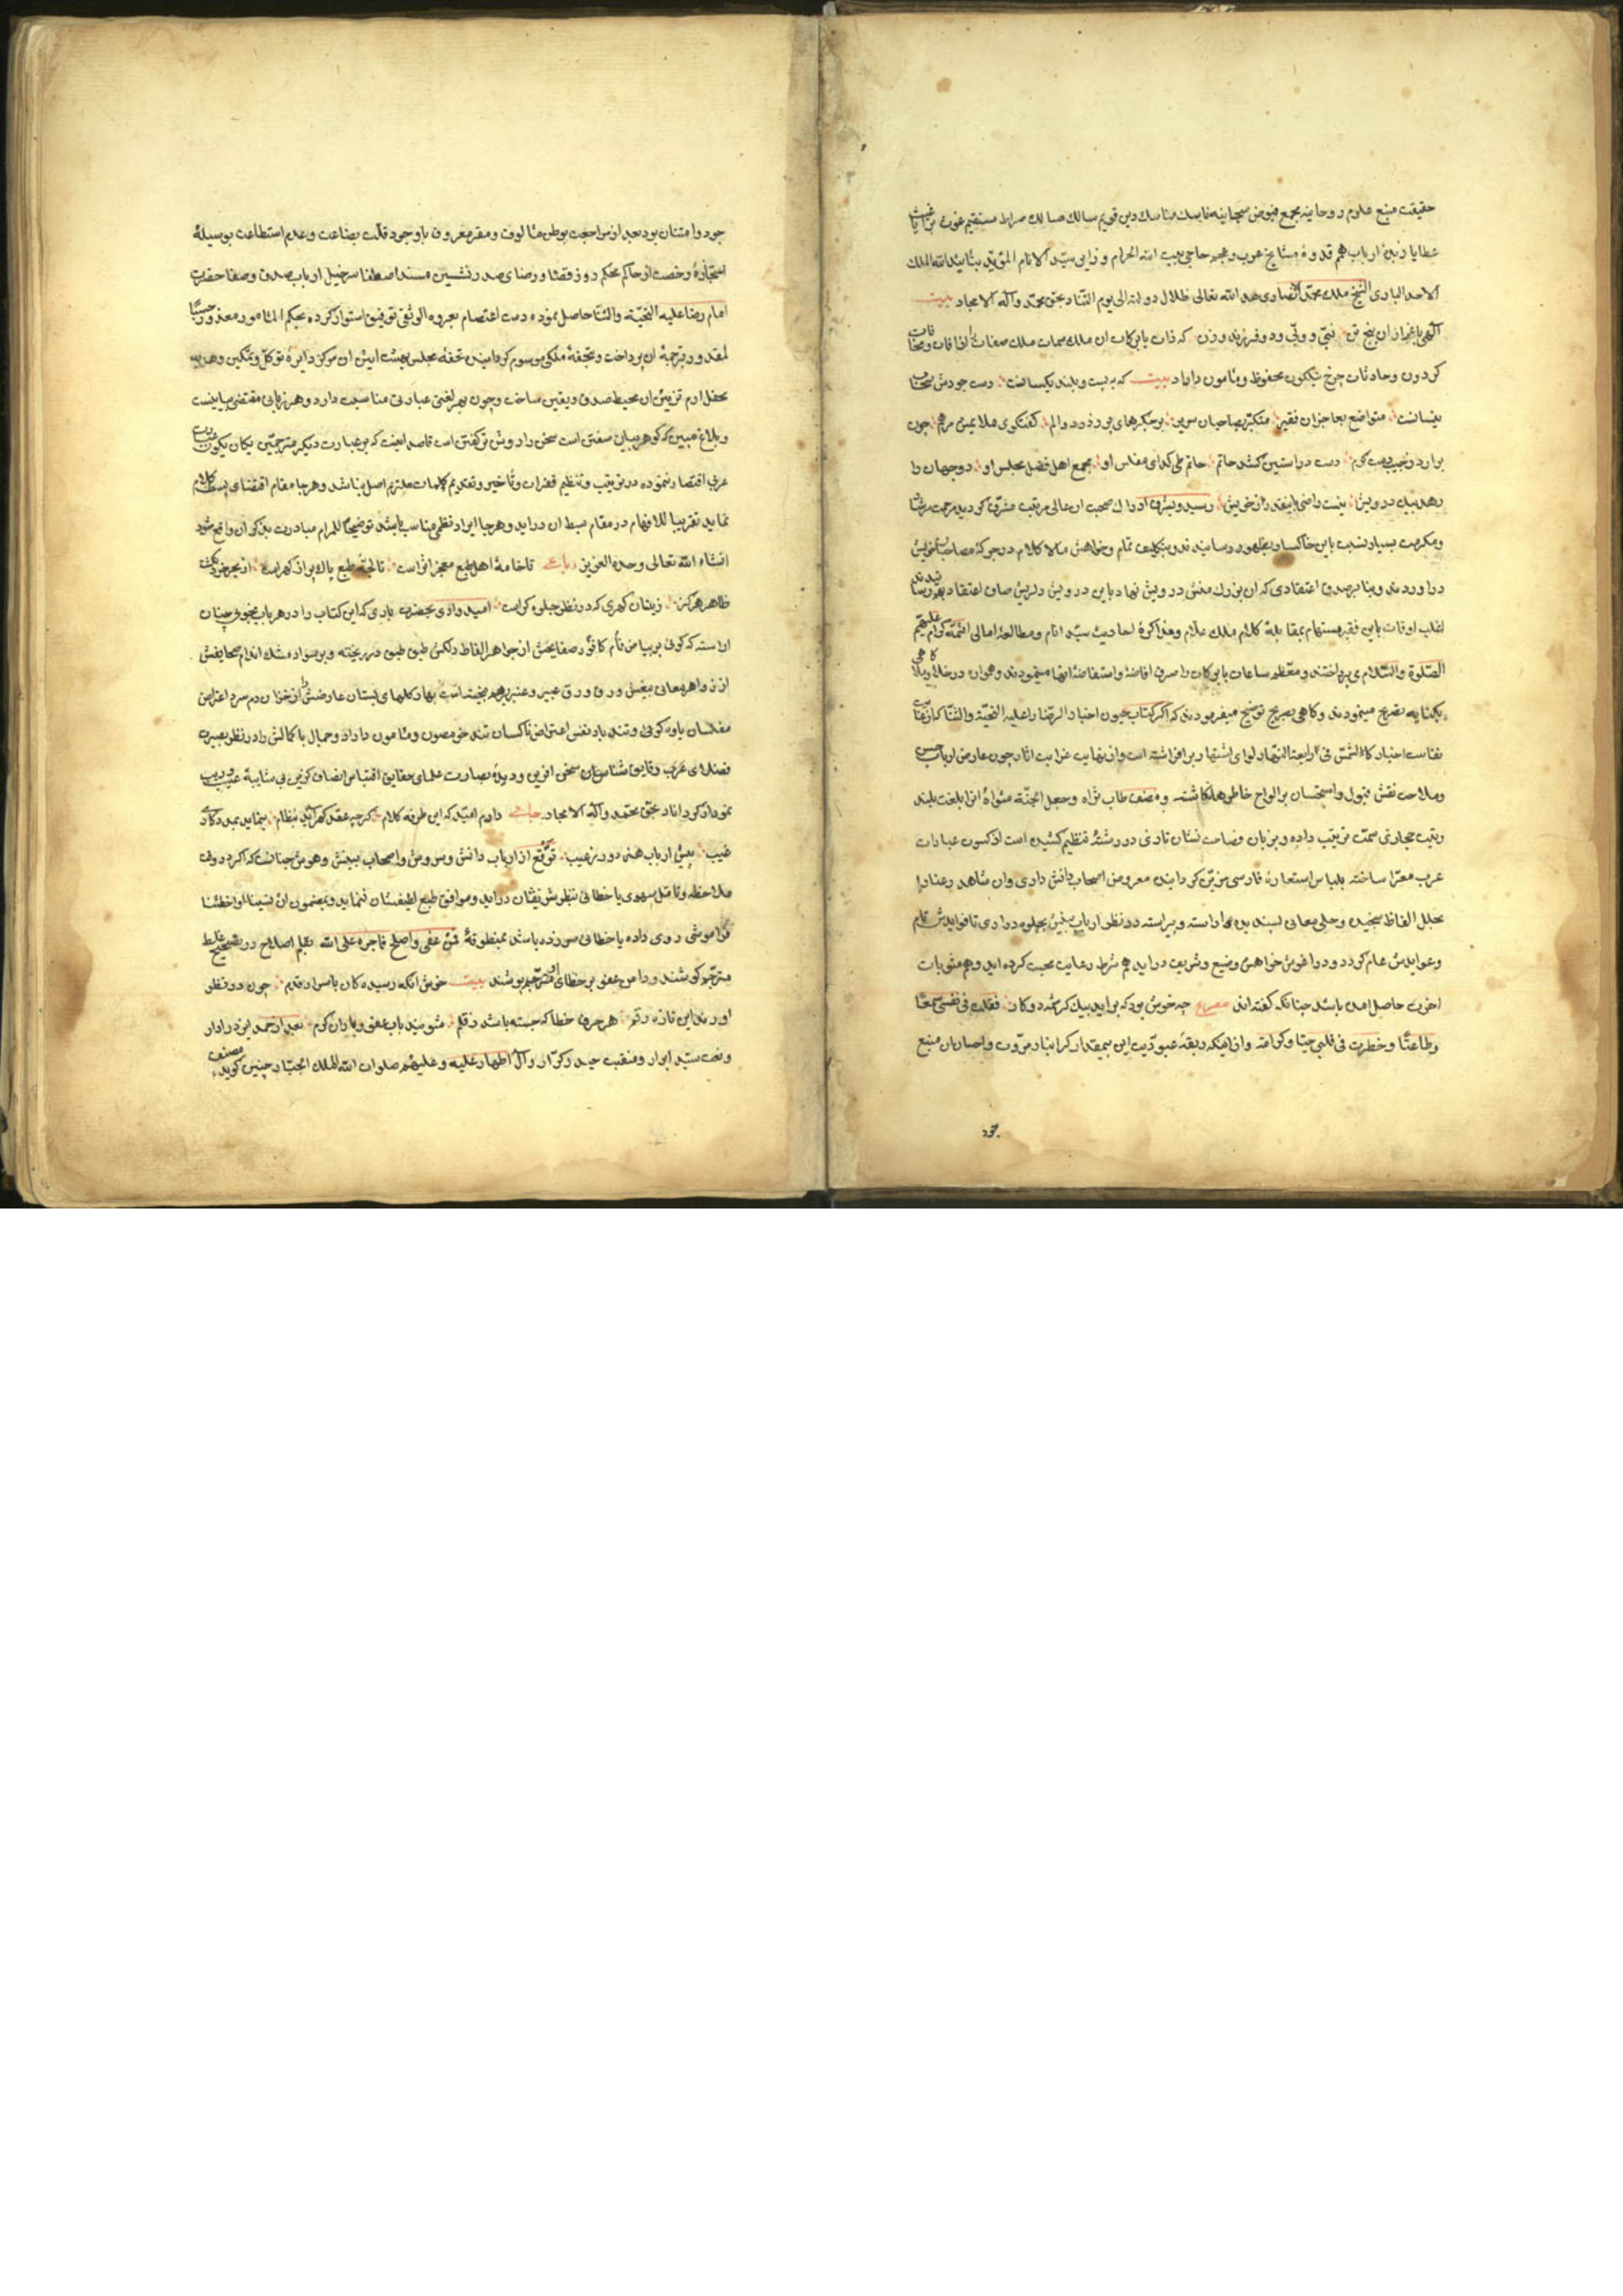 حقیقت منبع علوم روحانیه مجمع فیوض سبحانیه ناسك مناسك دین قویم سالك مسالك صراط مستقیم غوث برایا غیث
عطایا زبدهٔ ارباب همم قدوهٔ مشایخ عرب و عجم حاجی بیت الله الحرام و زایر سید الانام المؤید بتأیید الله الملك
الاحد الباری الشیخ ملك محمد انصاری مد الله تعالی ظلال دولته الی یوم التناد بحق محمد وآله الامجاد بیت
الهی باعزاز آن پنج تن نبی و ولی و دو فرزند و زن که ذات بابرکات آن ملك سمات ملك صفات را از آفات و مخافات
کردون و حادثات چرخ نیلکون محفوظ و مامون داراد بیت که به پست و بلند یکسانست دست جودش سحاب
نیسانست متواضع بعاجزان فقیر متکبر بصاحبان سریر بر جکرهای پر ز درد و الم کفتکوی ملایمش مرهم چون
برارد ز جیب دست کرم دست در آستین کشد حاتم حاتم طی کدای مفلس او مجمع اهل فضل مجلس او دو جهان را
دهد بیك درویش نیست راضی باینقدر از خویش رسید و بشرف ادراك صحبت آن عالی مرتبت مشرف کردید مرحمت مرشدانه
و مکرمت بسیار نسبت باین خاکسار بظهور رسانیدند و بتکلیف تمام و خواهش مالا کلام در جرکهٔ مصاحبان خویش
در آوردند و بنا بر صدق اعتقادی که آن بزرك منش درویش نهاد باین درویش دلریش صاف اعتقاد بهم رسانیدند
اغلب اوقات باین فقیر مستهام بمقابلهٔ کلام ملك علام و مذاکرهٔ احادیث سید انام و مطالعهٔ امالی ائمهٔ کرام علیهم
الصلوة والسلام می پرداختند و معظم ساعات بابرکات را صرف افاضه و استفاضهٔ آنها مینمودند و همواره در خلا و ملا کاهی
بکنایه تصریح مینمودند و کاهی بصریح توضیح میفرمودند که اکر کتاب عیون اخبار الرضا را علیه التحیة والثنا که از غایت
نفاست اخبار کالشمس فی رابعة النهار لوای اشتهار برافراشته است و از نهایت غرابت آثار چون عارض ارباب حسن
و ملاحت نقش قبول و استحسان بر الواح خاطرها نکاشته و مصنف طاب ثراه و جعل الجنة مثواه آنرا بلغت بلند
رتبت حجازی سمت ترتیب داده و بزبان فصاحت نشان تازی در رشتهٔ تنظیم کشیده است از کسوت عبارات
عرب معرا ساخته بلباس استعارهٔ فارسی مزین کردانیده معروض اصحاب دانش داری و آن شاهد رعنا را
بحلل الفاظ سنجیده و حلی معانی پسندیده آراسته و پیراسته در نظر ارباب بینش بجلوه در آری تا فوایدش تام
و عوایدش عام کردد و در آغوش خواهش وضیع و شریف در آید هم شرط رعایت محبت کرده اید و هم مثوبات
اخروی حاصل آمده باشد چنانکه کفته اند مصرع چه خوش بود که برآید بیك کرشمه دو کار فقلت فی نفسی سمعا
وطاعتًا و خطرت فی قلبی حبًا وکرامة و از آنجا که ربقهٔ عبودیت این بیمقدار کرانبار مروت و احسان آن منبع
جود
جود و امتنان بود بعد از مراجعت بوطن مألوف و مقر معروف باوجود قلت بضاعت و عدم استطاعت بوسیلهٔ
استجازه و رخصت از حاکم محکم روز قضا و رضای صدر نشین مسند اصطفا سرخیل ارباب صدق و صفا حضرت
امام رضا علیه التحیة والثنا حاصل نموده دست اعتصام بعروه الوثقی توفیق استوار کرده بحکم المأمور معذور حسب
المقدور بترجمهٔ آن پرداخت و بتحفهٔ ملکی موسوم کردانیده تحفهٔ مجلس بهشت آیین آن مرکز دایرهٔ توکل و تمکین و هدیه
محفل ارم تزیین آن محیط صدق و یقین ساخت و چون بهر لغتی عبارتی مناسبت دارد و هر زبانی مقتضی بیانیست
و بلاغ مبین که کوهر بیان سفتن است سخن را روشن تر کفتن است قاصد اینست که بر عبارت دیکر مترجمین یکان یکان
عربی اقتصار ننموده در ترتیب و تنظیم فقرات و تأخیر و تقدیم کلمات ملتزم اصل نباشد و هرجا مقام اقتضای بسط کلام
نماید تقریبا للافهام در مقام بسط آن در آید و هرجا ایراد نظمی مناسب باشد توضیحًا للمرام مبادرت بذکر آن واقع شود
انشاء الله تعالی وحده العزیز رباعی تا خامهٔ اهل طبع معجز اثر است تا لجهٔ طبع پاك پر از کهر است از بحر خرد نکشت
ظاهر هرکز زینسان کهری که در نظر جلوه کر است امید وارم بحضرت باری که این کتاب را در هر باب بخوبی چنان
آراسته که کوئی بر بیاض فام کافور صفایحش از جواهر الفاظ دلکش طبق طبق در ریخته و بر سواد مشك اندام صحایفش
از زواهر معانی بیغش ورق ورق عبیر و عنبر بهم بیخته است بهار کلهای بستان عارضش را از خزان دم سرد اعتراض
مفلسان یاوه کوئی و تند باد نفس اعتراض ناکسان تند خو مصون و مامون داراد و جمال باکمالش را در نظر بصیرت
فضلای عرب و دقایق شناسان سخن آفرین و دیدهٔ بصارت علمای حقایق اقتباس انصاف کزین بی شایبهٔ عیب و ریب
نمودار کرداناد بحق محمد وآله الامجاد جامی دارم امید که این طرفه کلام کرچه عقد کهر آید بنظام ننماید بمددکاری
غیب پیش ارباب هنر دور ز عیب توقع از ارباب دانش و سروش و اصحاب بینش و هوش چنانست که اکر در وقت
ملاحظه و تأمل سهوی یا خطائی بنظر شریفشان در آید و موافق طبع لطیفشان ننماید و بمضمون ان نسینا او اخطأنا
فراموشی روی داده یا خطائی سر زده باشد بمنطوقهٔ فمن عفی واصلح فاجره علی الله بقلم اصلاح در تصحیح غلط
مترجم کوشند و دامن عفو بر خطای مترجم پوشند بیت خوش آنکه رسیده کان باسرار قدیم چون در نظر
آورند این تازه رقم هر حرف خطا که جسته باشد ز قلم شویند بآب عفو و باران کرم بعد از حمد ایزد دادار
و نعت سید ابرار و منقبت حیدر کرار و آل اطهار علیه و علیهم صلوات الله الملك الجبار چنین کوید مصنف